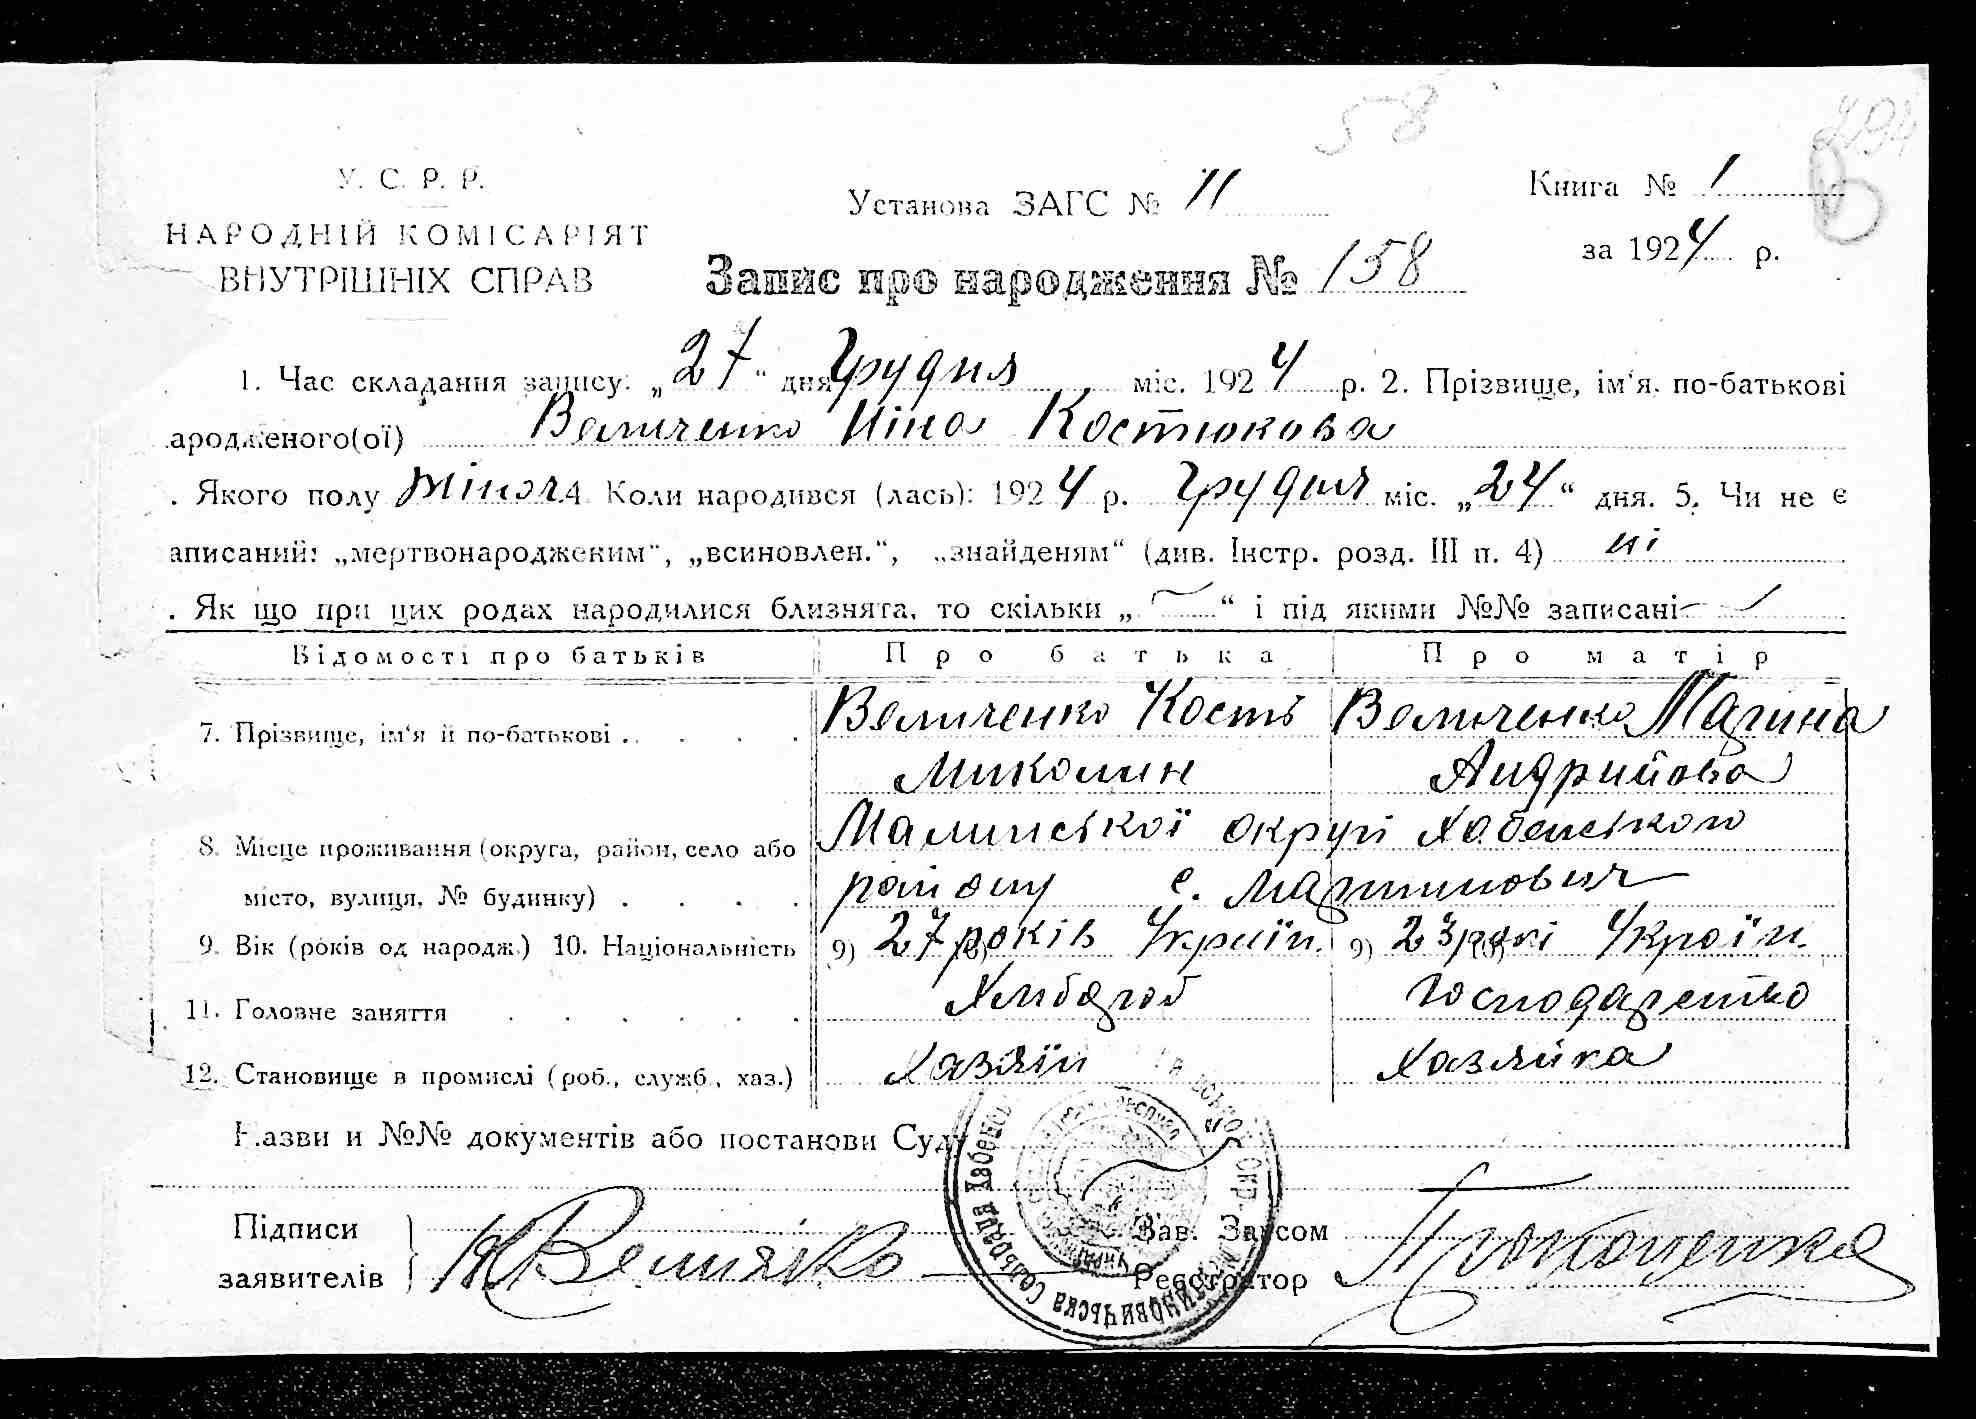 58
294
В
У. С. Р. Р.
НАРОДНІЙ КОМІСАРІЯТ
ВНУТРІШНІХ СПРАВ
Установа ЗАГС № 11
Книга № 1
за 1924 р.
Запис про народження № 158
1. Час складання запису: „27“ дня Грудня міс. 1924 р. 2. Прізвище, ім'я, по-батькові
ародженого(ої) Величенко Ніна Костюкова
. Якого полу жіноч. 4. Коли народився (лась): 1924 р. Грудня міс. „24“ дня. 5. Чи не є
аписаний: „мертвонародженим“, „всиновлен.“, „знайденям“ (див. Інстр. розд. III п. 4) ні
. Як що при цих родах народилися близнята, то скільки „—“ і під якими №№ записані —
Відомості про батьків Про батька Про матір
7. Прізвище, ім'я й по-батькові . . . . Величенко Кость Величенко Марина
Миколин Андрийова
8. Місце проживання (округа, район, село або Малинської округи Хабенського
місто, вулиця, № будинку) . . . . району с. Мартинович
9. Вік (років од народж.) 10. Національність 9) 27 років Україн. 9) 23 рокі Україн.
11. Головне заняття . . . . . . Хлібороб Господарство
12. Становище в промислі (роб., служб., хаз.) Хазяїн Хазяйка
Назви и №№ документів або постанови Суду
Підписи
заявителів
Зав. Загсом
Реєстратор